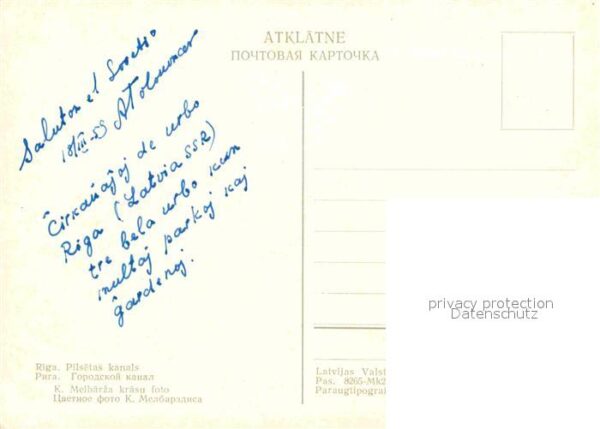 ATKLĀTNE
ПОЧТОВАЯ КАРТОЧКА
Saluton el Sovetio
18/III-59
Ĉirkaŭaĵoj de urbo
Riga (Latvia SSR)
tre bela urbo kun
multaj parkoj kaj
ĝardenoj.
Rīga. Pilsētas kanāls
Рига. Городской канал
K. Melbārža krāsu foto
Цветное фото К. Мелбардзиса
Latvijas Valst
Pas. 8265-Mk2
Paraugtipograf
privacy protection
Datenschutz